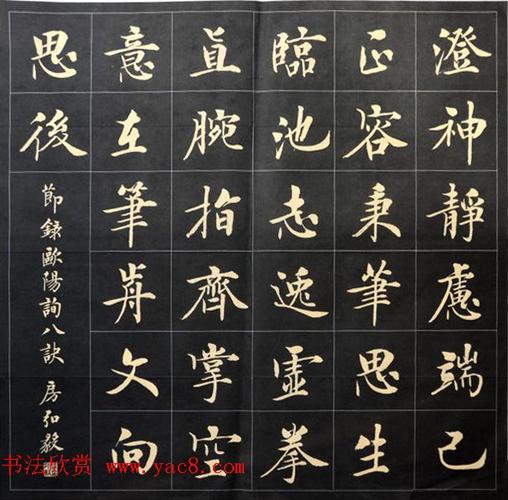 澄神靜慮端己
正容秉筆思生
臨池志逸虛拳
直腕指齊掌空
意在筆歬文向
思後
節錄歐陽詢八訣 房弘毅
书法欣赏 www.yac8.com